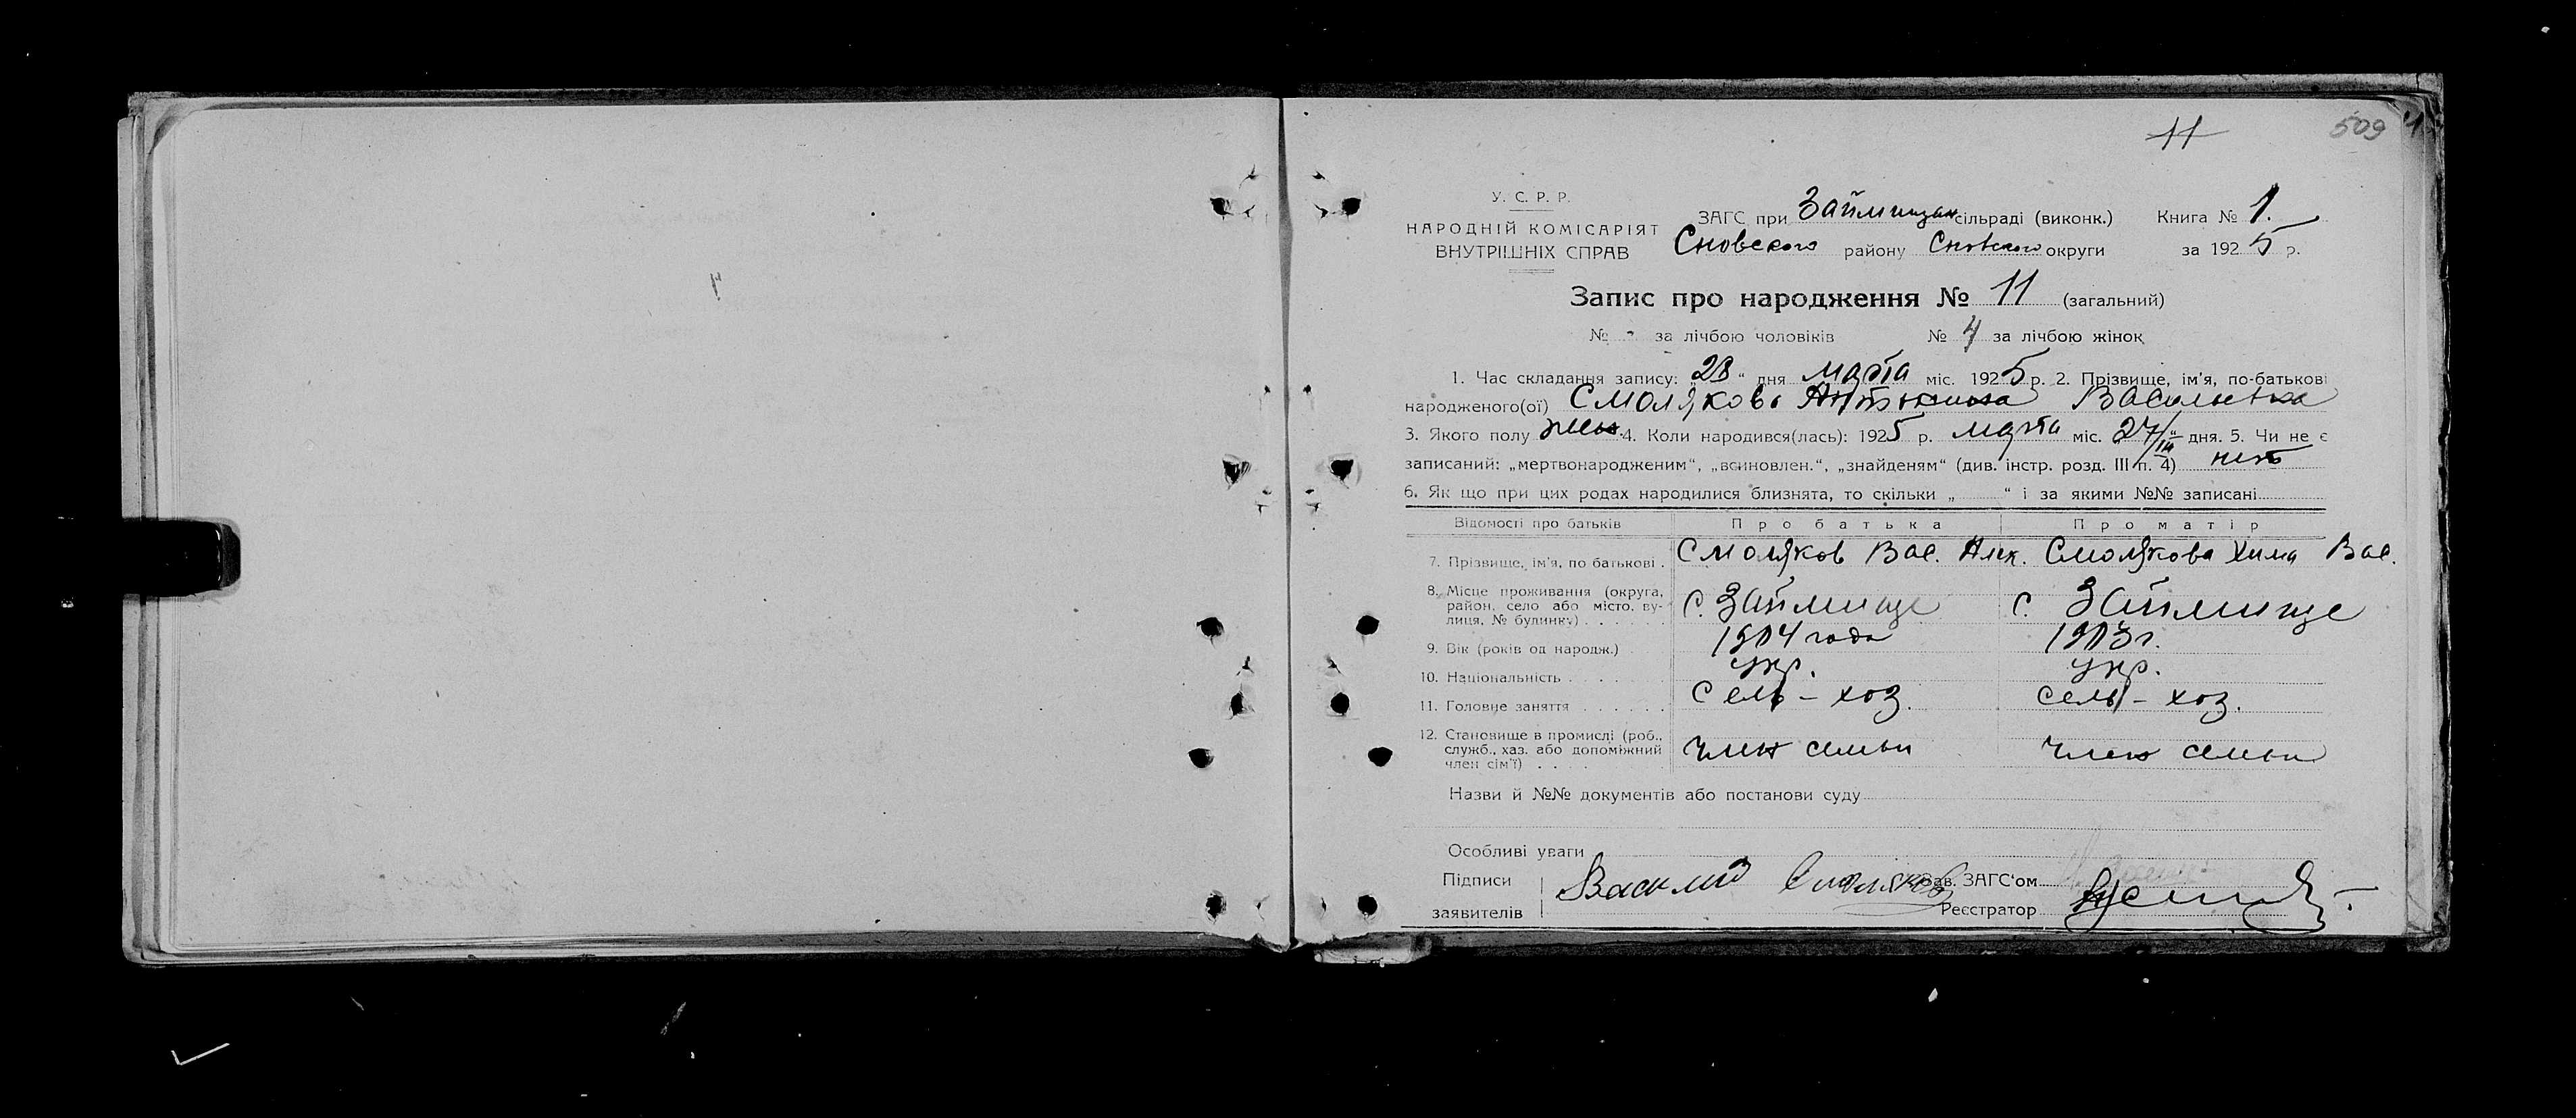 11
509
У. С. Р. Р.
НАРОДНІЙ КОМІСАРІЯТ
ВНУТРІШНІХ СПРАВ
ЗАГС при Займищан сільраді (виконк.) Книга № 1.
Сновского району Сновского округи за 1925 р.
Запис про народження № 11 (загальний)
№ - за лічбою чоловіків № 4 за лічбою жінок
1. Час складання запису: „28“ дня марта міс. 1925 р. 2. Прізвище, ім'я, по-батькові
народженого(ої) Смолякова Антонина Васильевна
3. Якого полу жен. 4. Коли народився(лась): 1925 р. марта міс. 27/III дня. 5. Чи не є
записаний: „мертвонародженим“, „всиновлен.“, „знайденям“ (див. інстр. розд. III п. 4) нет
6. Як що при цих родах народилися близнята, то скільки „ “ і за якими №№ записані
Відомості про батьків Про батька Про матір
7. Прізвище, ім'я, по батькові . Смоляков Вас. Алек. Смолякова Хима Вас.
8. Місце проживання (округа, район, село або місто, вулиця, № будинку) . . . . . с. Займище с. Займище
9. Вік (років од народж.) 1904 года 1903 г.
10. Національність . . . . . укр. укр.
11. Головне заняття . . . . . . сель - хоз. сель - хоз.
12. Становище в промислі (роб., служб., хаз. або допоміжний член сім'ї) . . . . член семьи член семьи
Назви й №№ документів або постанови суду
Особливі уваги
Підписи заявителів Василий Смоляков
Зав. ЗАГС'ом
Реєстратор